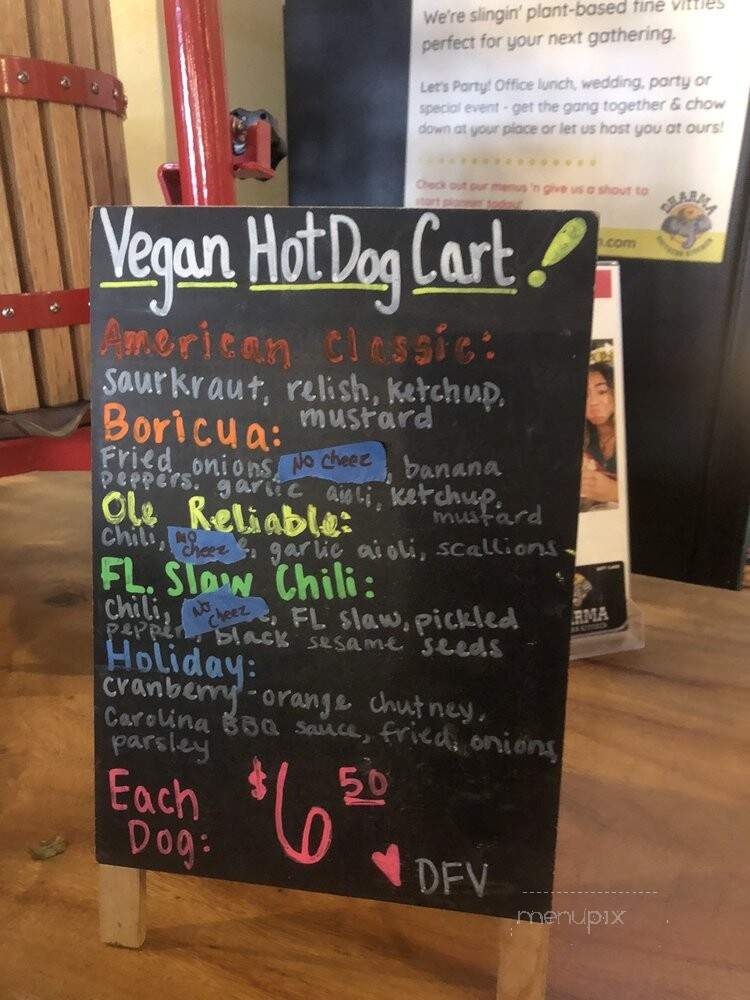 We're slingin' plant-based fine vittles
perfect for your next gathering.
Let's Party! Office lunch, wedding, party or
special event - get the gang together & chow
down at your place or let us host you at ours!
Check out our menus 'n give us a shout to
start plannin' today!
DHARMA
.com
Vegan Hot Dog Cart!
American Classic:
saurkraut, relish, ketchup,
mustard
Boricua:
Fried onions, No Cheez, banana
peppers, garlic aioli, ketchup,
mustard
Ole Reliable:
chili, No cheez, garlic aioli, scallions
FL. Slaw Chili:
chili, No cheez, FL slaw, pickled
pepper, black sesame seeds
Holiday:
cranberry-orange chutney,
Carolina BBQ sauce, fried onions,
parsley
Each
Dog:
$6 50
DFV
RMA
menupix